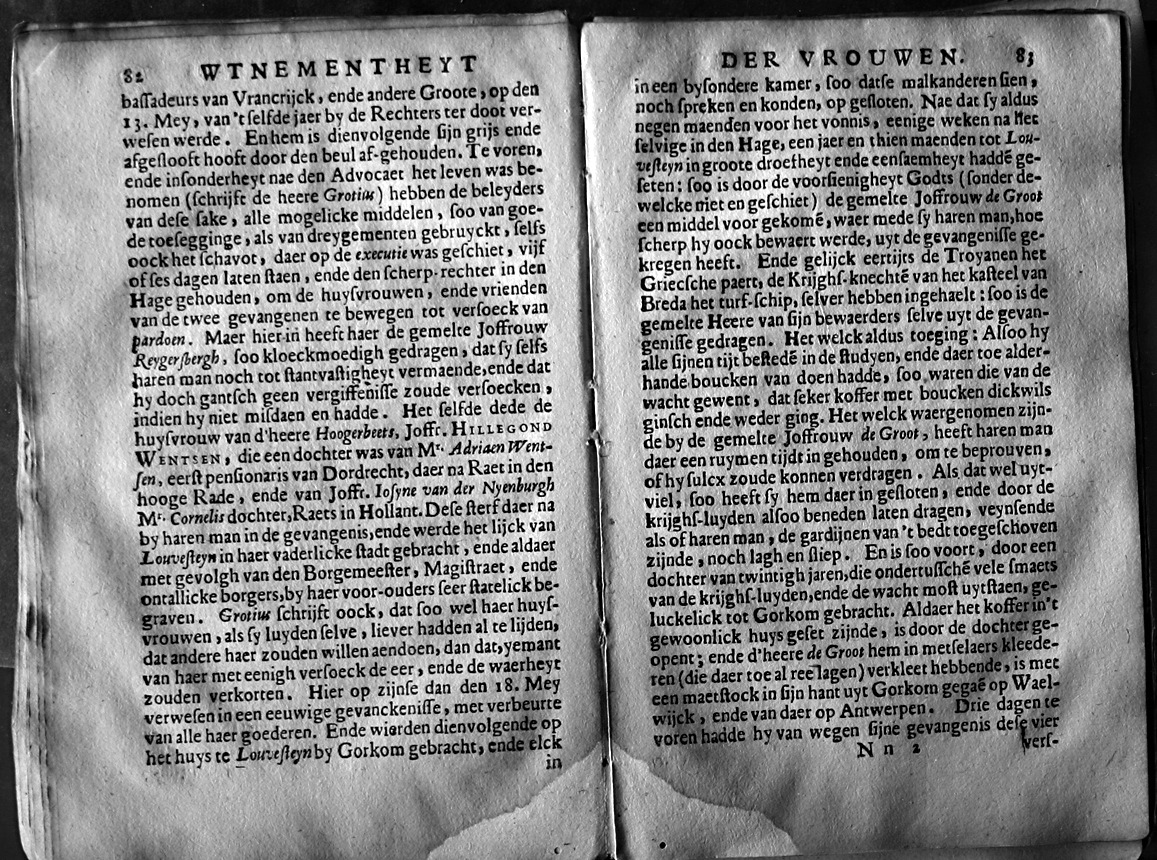 82 WTNEMENTHEYT
baſſadeurs van Vrancrijck, ende andere Groote, op den
13. Mey, van 't ſelfde jaer by de Rechters ter doot ver-
weſen werde. En hem is dienvolgende ſijn grijs ende
afgeſlooft hooft door den beul af-gehouden. Te voren,
ende inſonderheyt nae den Advocaet het leven was be-
nomen (ſchrijft de heere Grotius) hebben de beleyders
van deſe ſake, alle mogelicke middelen, ſoo van goe-
de toeſegginge, als van dreygementen gebruyckt, ſelfs
oock het ſchavot, daer op de executie was geſchiet, vijf
of ſes dagen laten ſtaen, ende den ſcherp-rechter in den
Hage gehouden, om de huyſvrouwen, ende vrienden
van de twee gevangenen te bewegen tot verſoeck van
pardoen. Maer hier-in heeft haer de gemelte Joffrouw
Reygerſbergh, ſoo kloeckmoedigh gedragen, dat ſy ſelfs
haren man noch tot ſtantvaſtigheyt vermaende, ende dat
hy doch gantſch geen vergiffeniſſe zoude verſoecken,
indien hy niet miſdaen en hadde. Het ſelfde dede de
huyſvrouw van d'heere Hoogerbeets, Joffr. HILLEGOND
WENTSEN, die een dochter was van Mr. Adriaen Went-
ſen, eerſt penſionaris van Dordrecht, daer na Raet in den
hooge Rade, ende van Joffr. Ioſyne van der Nyenburgh
Mr. Cornelis dochter, Raets in Hollant. Deſe ſterf daer na
by haren man in de gevangenis, ende werde het lijck van
Louveſteyn in haer vaderlicke ſtadt gebracht, ende aldaer
met gevolgh van den Borgemeeſter, Magiſtraet, ende
ontallicke borgers, by haer voor-ouders ſeer ſtatelick be-
graven. Grotius ſchrijft oock, dat ſoo wel haer huyſ-
vrouwen, als ſy luyden ſelve, liever hadden al te lijden,
dat andere haer zouden willen aendoen, dan dat, yemant
van haer met eenigh verſoeck de eer, ende de waerheyt
zouden verkorten. Hier op zijnſe dan den 18. Mey
verweſen in een eeuwige gevanckeniſſe, met verbeurte
van alle haer goederen. Ende wierden dienvolgende op
het huys te Louveſteyn by Gorkom gebracht, ende elck
in
DER VROUWEN. 83
in een byſondere kamer, ſoo datſe malkanderen ſien,
noch ſpreken en konden, op geſloten. Nae dat ſy aldus
negen maenden voor het vonnis, eenige weken na het
ſelvige in den Hage, een jaer en thien maenden tot Lou-
veſteyn in groote droefheyt ende eenſaemheyt haddẽ ge-
ſeten: ſoo is door de voorſienigheyt Godts (ſonder de-
welcke niet en geſchiet) de gemelte Joffrouw de Groot
een middel voor gekomẽ, waer mede ſy haren man, hoe
ſcherp hy oock bewaert werde, uyt de gevangeniſſe ge-
kregen heeft. Ende gelijck eertijts de Troyanen het
Griecſche paert, de Krijghſ-knechtẽ van het kaſteel van
Breda het turf-ſchip, ſelver hebben ingehaelt: ſoo is de
gemelte Heere van ſijn bewaerders ſelve uyt de gevan-
geniſſe gedragen. Het welck aldus toeging: Alſoo hy
alle ſijnen tijt beſtedẽ in de ſtudyen, ende daer toe alder-
hande boucken van doen hadde, ſoo waren die van de
wacht gewent, dat ſeker koffer met boucken dickwils
ginſch ende weder ging. Het welck waergenomen zijn-
de by de gemelte Joffrouw de Groot, heeft haren man
daer een ruymen tijdt in gehouden, om te beprouven,
of hy ſulcx zoude konnen verdragen. Als dat wel uyt-
viel, ſoo heeft ſy hem daer in geſloten, ende door de
krijghſ-luyden alſoo beneden laten dragen, veynſende
als of haren man, de gardijnen van 't bedt toegeſchoven
zijnde, noch lagh en ſliep. En is ſoo voort, door een
dochter van twintigh jaren, die ondertuſſchẽ vele ſmaets
van de krijghſ-luyden, ende de wacht moſt uytſtaen, ge-
luckelick tot Gorkom gebracht. Aldaer het koffer in 't
gewoonlick huys geſet zijnde, is door de dochter ge-
opent; ende d'heere de Groot hem in metſelaers kleede-
ren (die daer toe al ree lagen) verkleet hebbende, is met
een maetſtock in ſijn hant uyt Gorkom gegaẽ op Wael-
wijck, ende van daer op Antwerpen. Drie dagen te
voren hadde hy van wegen ſijne gevangenis deſe vier
N n 2 verſ-